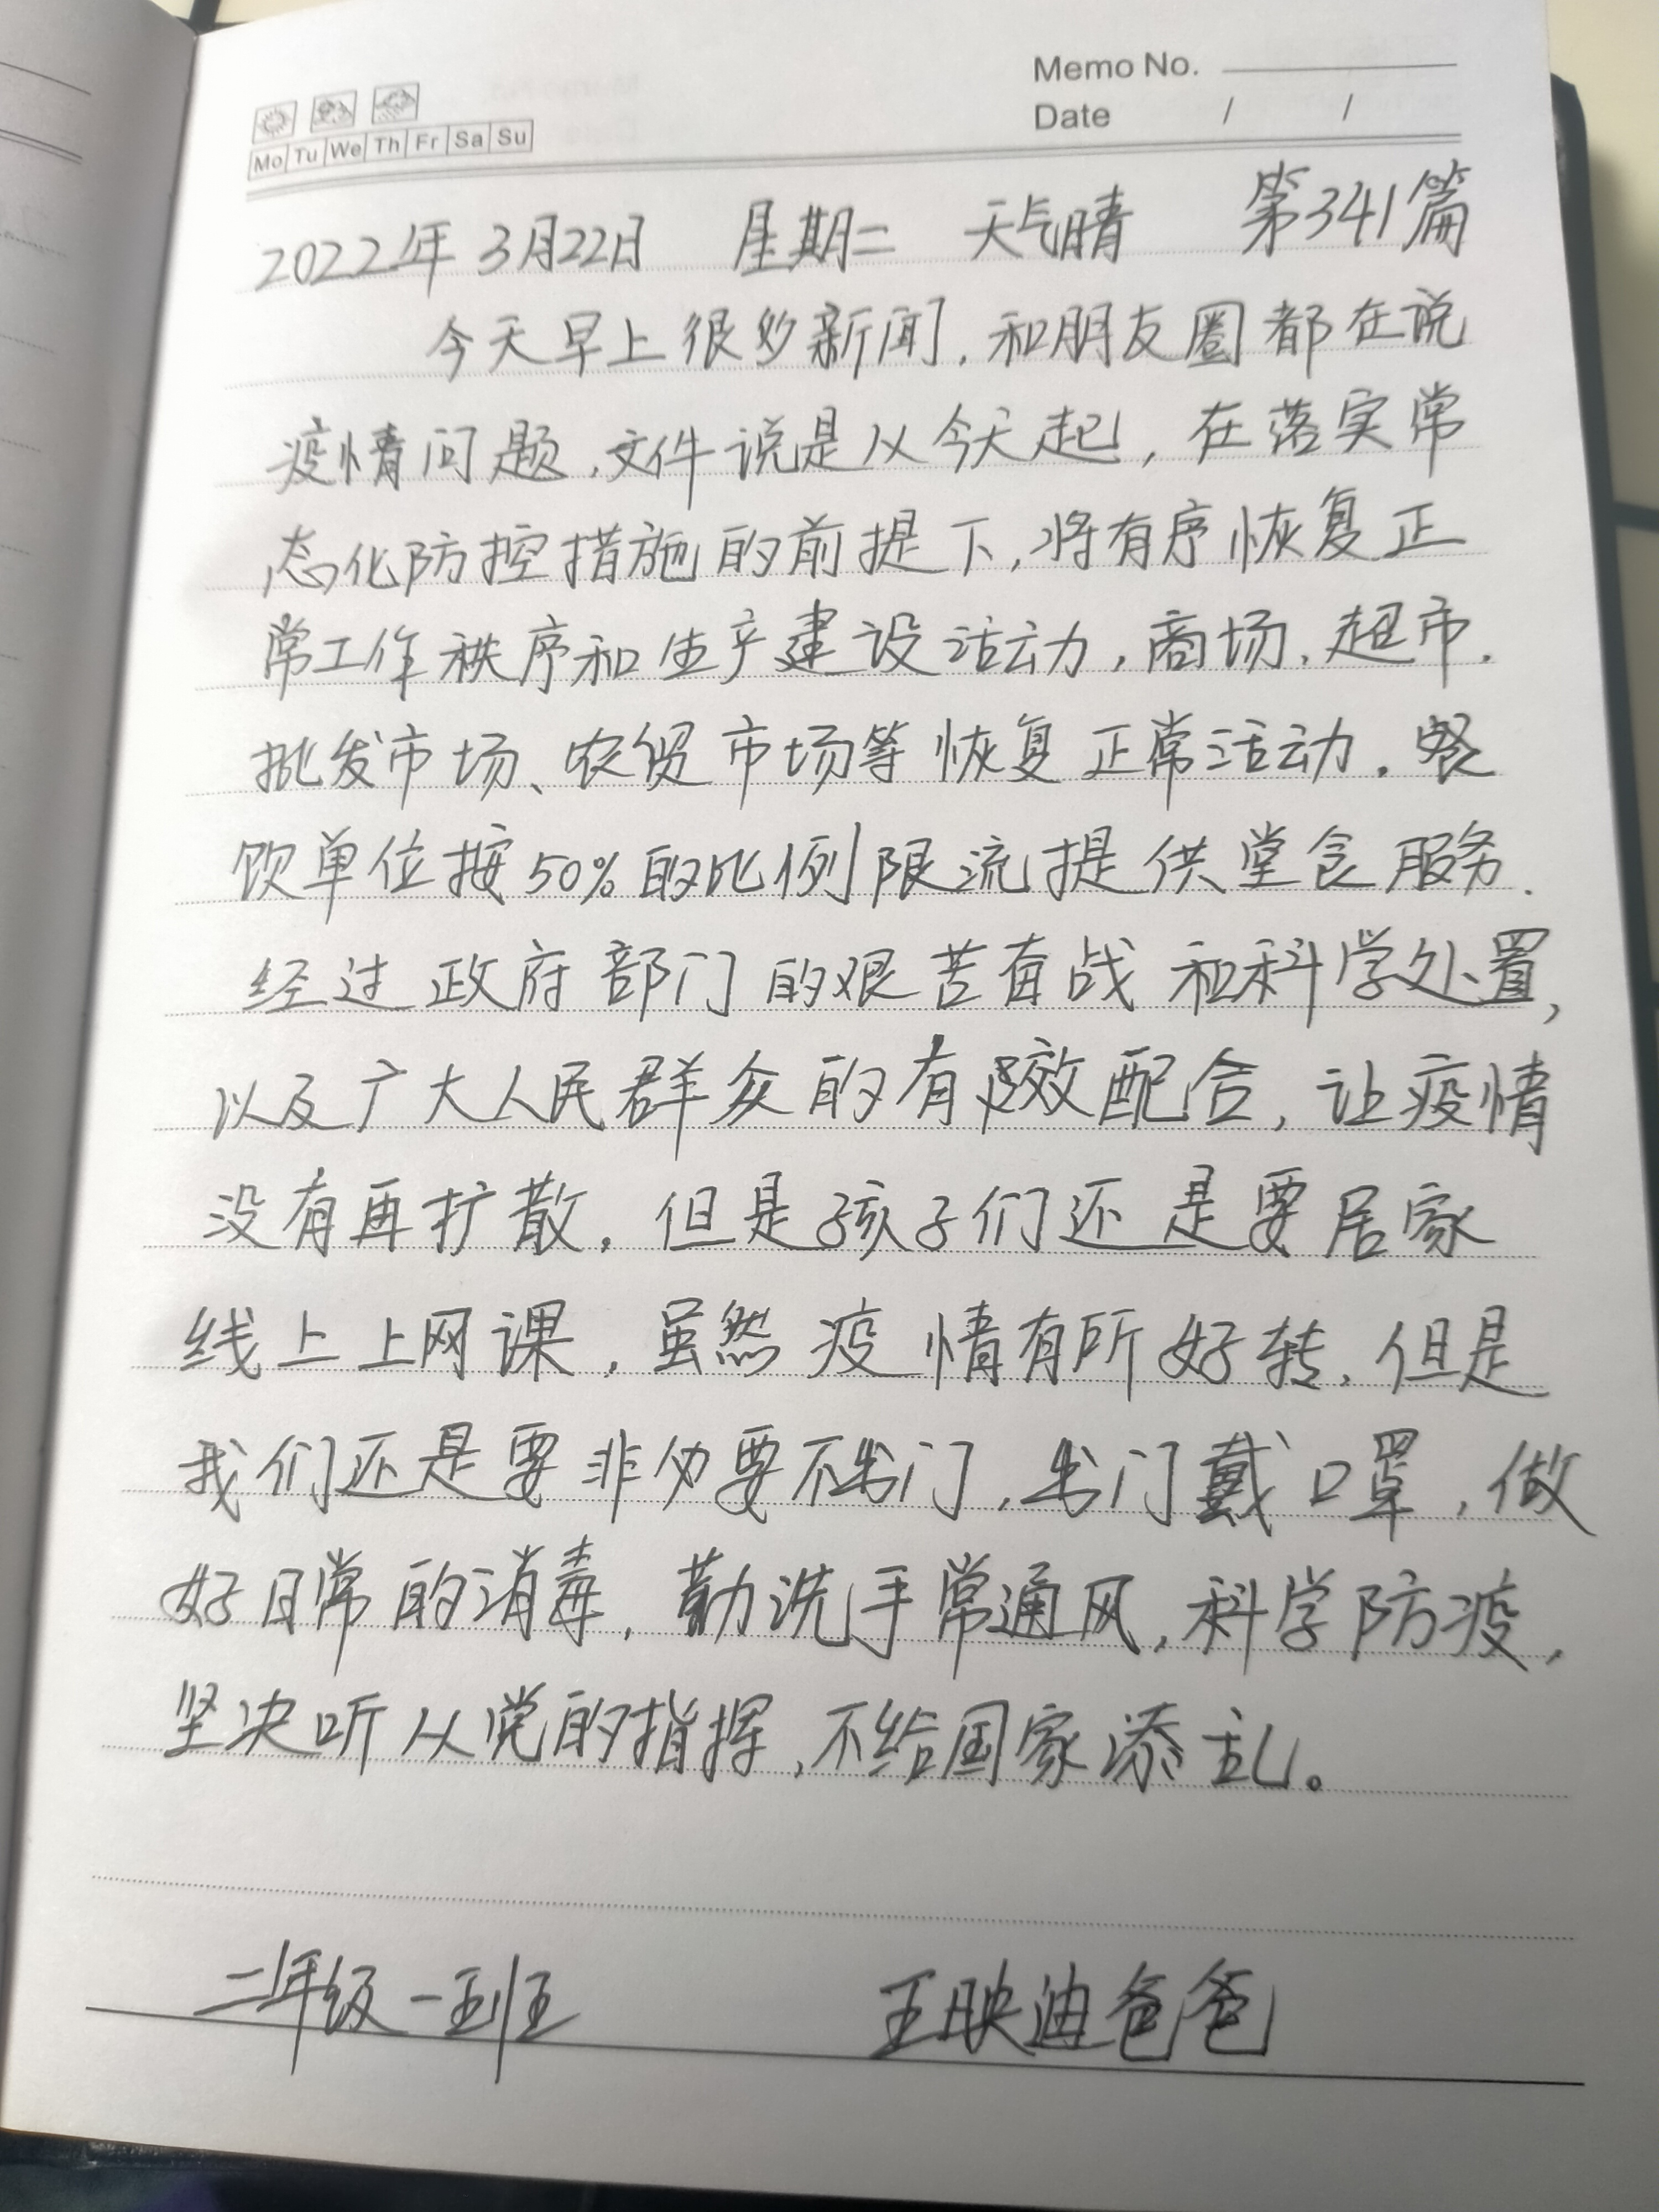 Memo No.
Date / /
Mo Tu We Th Fr Sa Su
2022年 3月22日 星期二 天气晴 第341篇
今天早上很多新闻,和朋友圈都在说
疫情问题,文件说是从今天起,在落实常
态化防控措施的前提下,将有序恢复正
常工作秩序和生产建设活动,商场、超市、
批发市场、农贸市场等恢复正常活动.餐
饮单位按50%的比例限流提供堂食服务.
经过政府部门的艰苦奋战和科学处置,
以及广大人民群众的有效配合,让疫情
没有再扩散.但是孩子们还是要居家
线上上网课.虽然疫情有所好转,但是
我们还是要非必要不出门,出门戴口罩,做
好日常的消毒,勤洗手常通风,科学防疫,
坚决听从党的指挥,不给国家添乱。
二年级一班 王映迪爸爸